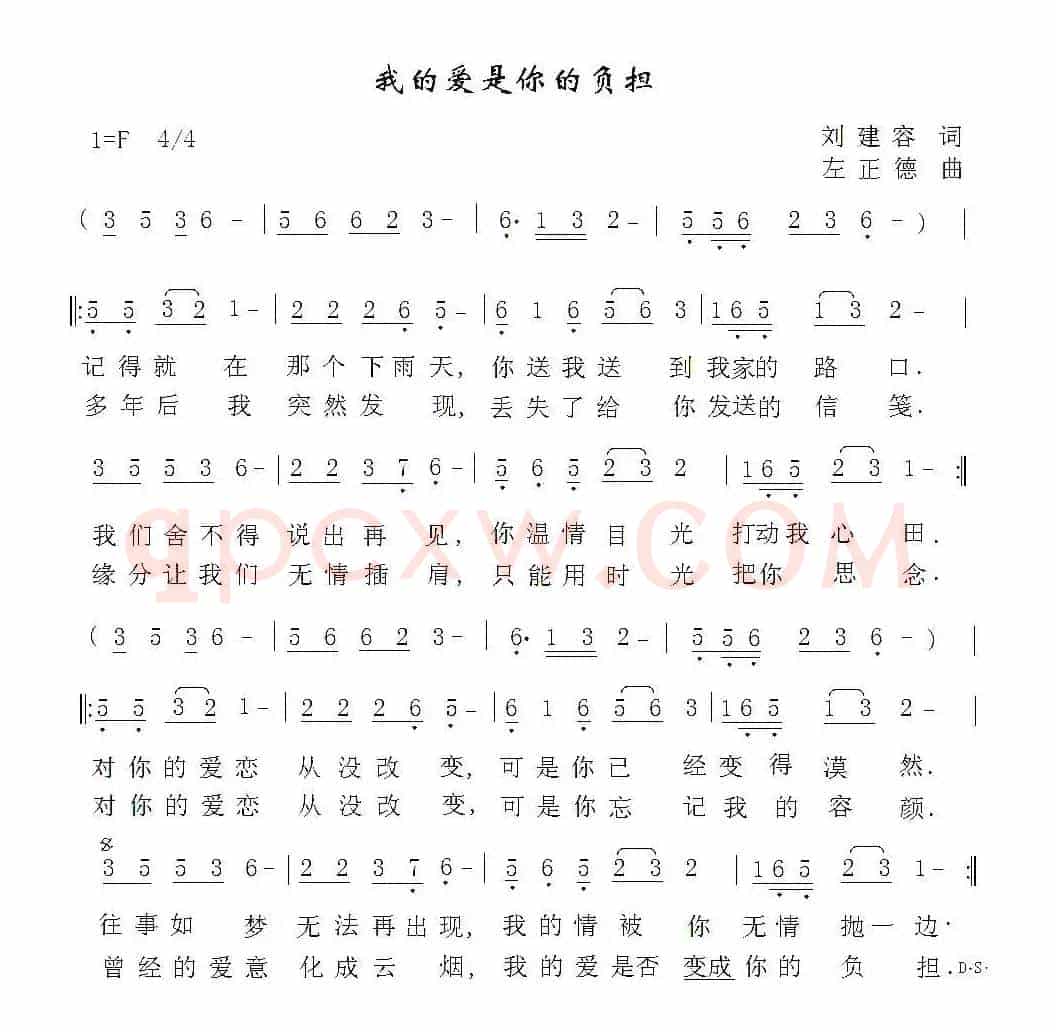 我的爱是你的负担
1=F 4/4
刘建容 词
左正德 曲
( 3 5 3 6 - | 5 6 6 2 3 - | 6· 1 3 2 - | 5 5 6 2 3 6 - ) |
‖: 5 5 3 2 1 - | 2 2 2 6 5 - | 6 1 6 5 6 3 | 1 6 5 1 3 2 - |
记得就在那个下雨天,你送我送到我家的路口.
多年后我突然发现,丢失了给你发送的信笺.
3 5 5 3 6 - | 2 2 3 7 6 - | 5 6 5 2 3 2 | 1 6 5 2 3 1 - :‖
我们舍不得说出再见,你温情目光打动我心田.
缘分让我们无情插肩,只能用时光把你思念.
qpcxw.COM
( 3 5 3 6 - | 5 6 6 2 3 - | 6· 1 3 2 - | 5 5 6 2 3 6 - ) |
‖: 5 5 3 2 1 - | 2 2 2 6 5 - | 6 1 6 5 6 3 | 1 6 5 1 3 2 - |
对你的爱恋从没改变,可是你己经变得漠然.
对你的爱恋从没改变,可是你忘记我的容颜.
3 5 5 3 6 - | 2 2 3 7 6 - | 5 6 5 2 3 2 | 1 6 5 2 3 1 - :‖
往事如梦无法再出现,我的情被你无情抛一边·
曾经的爱意化成云烟,我的爱是否变成你的负担.D·S·